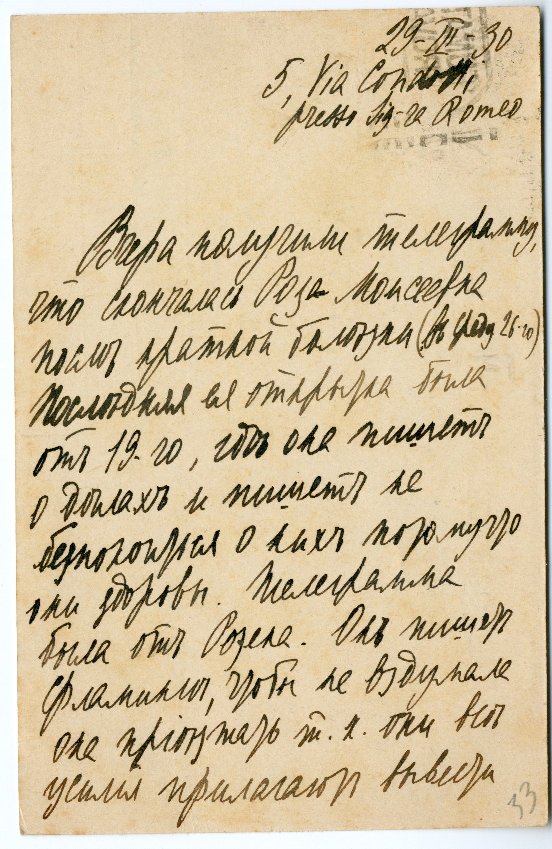 29-III-30
5, Via Condotti,
presso Sig-ra Romeo
Вчера получили телеграмму,
что скончалась Роза Моисеевна
послѣ краткой болѣзни (въ среду 26-го)
Послѣдняя ея открытка была
отъ 19-го, гдѣ она пишетъ
о дѣлахъ и пишетъ не
безпокоиться о нихъ потому что
они здоровы. Телеграмма
была отъ Розена. Онъ пишетъ
чтобы не вздумала
она пріѣзжать т. к. они всѣ
усилія прилагаютъ вывезти
33